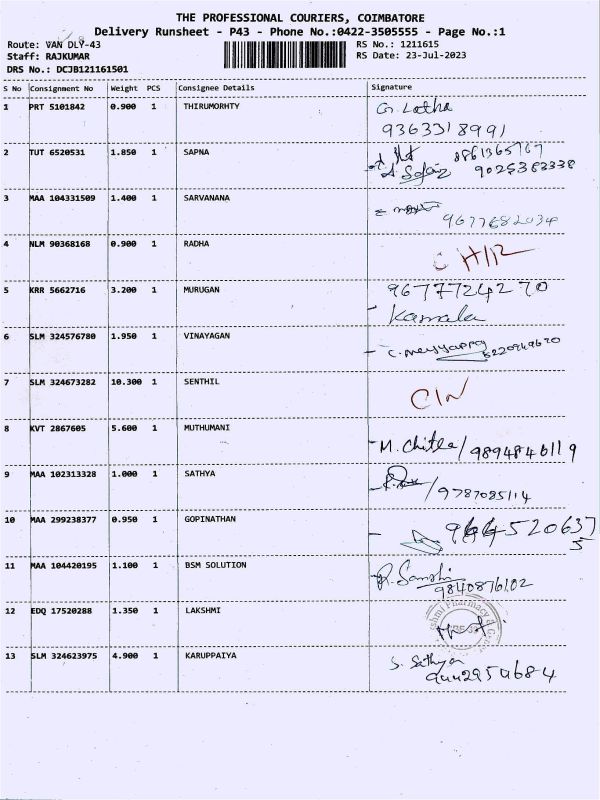 THE PROFESSIONAL COURIERS, COIMBATORE
Delivery Runsheet - P43 - Phone No.:0422-3505555 - Page No.:1
Route: VAN DLY-43
RS No.: 1211615
Staff: RAJKUMAR
RS Date: 23-Jul-2023
DRS No.: DCJB121161501
S No Consignment No Weight PCS Consignee Details Signature
1 PRT 5101842 0.900 1 THIRUMORHTY G. Latha
9363318991
2 TUT 6520531 1.850 1 SAPNA 8861365767
9025382338
3 MAA 104331509 1.400 1 SARVANANA
9677682034
4 NLM 90368168 0.900 1 RADHA
5 KRR 5662716 3.200 1 MURUGAN 9677724270
Kamala
6 SLM 324576780 1.950 1 VINAYAGAN
C. Meyyappa
7 SLM 324673282 10.300 1 SENTHIL
CIN
8 KVT 2867605 5.600 1 MUTHUMANI
M. Chitla/9894846119
9 MAA 102313328 1.000 1 SATHYA
/9787085114
10 MAA 299238377 0.950 1 GOPINATHAN
11 MAA 104420195 1.100 1 BSM SOLUTION
9840876102
12 EDQ 17520288 1.350 1 LAKSHMI
Pharmacy
13 SLM 324623975 4.900 1 KARUPPAIYA
S. Sathya